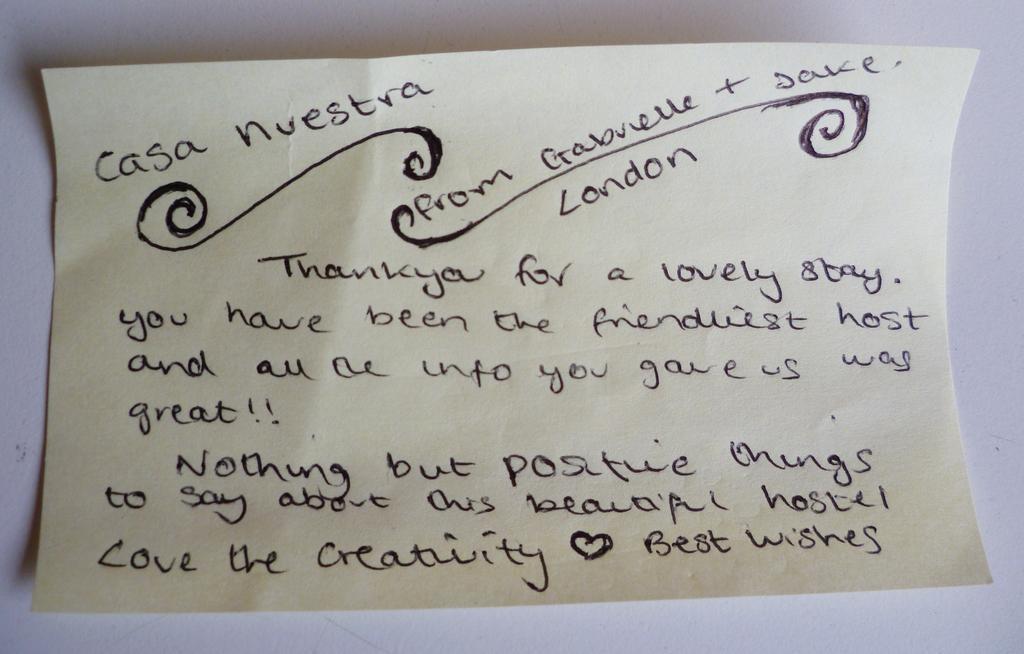 Casa Nuestra
From Gabrielle + Jake.
London
Thankyou for a lovely stay.
you have been the friendliest host
and all the info you gave us was
great!!
Nothing but positive things
to say about this beautiful hostel
Love the creativity ♡ Best wishes